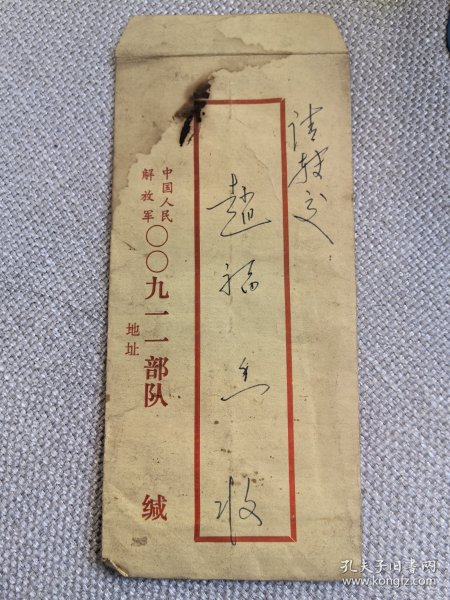 请转交
赵福生收
中国人民
解放军
〇〇九一一部队
地址
缄
孔夫子旧书网
www.kongfz.com